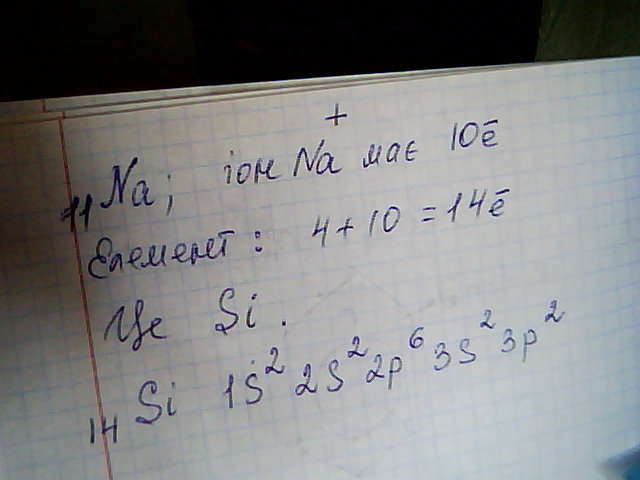 ₁₁Na; іон Na⁺ має 10ē
Елемент: 4 + 10 = 14ē
Це Si.
₁₄Si 1s² 2s² 2p⁶ 3s² 3p²